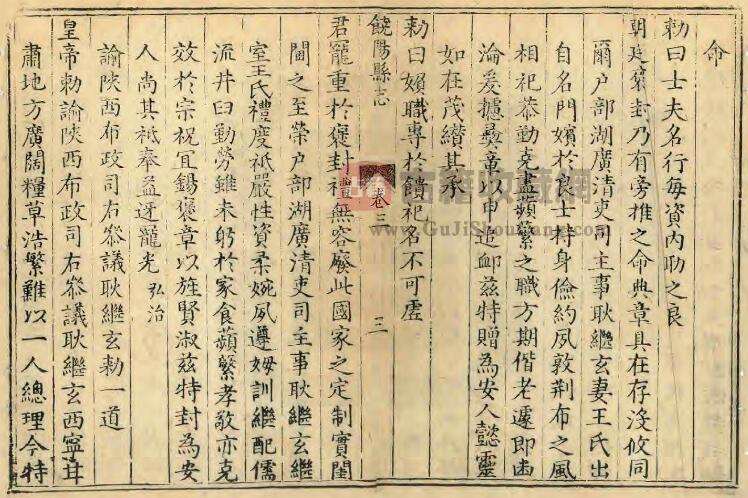 命
勅曰士夫名行每資内助之良
朝廷褒封乃有旁推之命典章具在存没攸同
爾户部湖廣清吏司主事耿繼玄妻王氏出
自名門嬪於良士持身儉約夙敦荆布之風
相祀恭勤克盡蘋蘩之職方期偕老遽即幽
淪爰據彝章以申追卹兹特贈為安人懿靈
如在茂纘其承
勅曰嬪職專於饋祀名不可虚
饒陽縣志
卷三
三
君寵重於褒封禮無容廢此國家之定制實閨
閫之至榮户部湖廣清吏司主事耿繼玄繼
室王氏禮度祗嚴性資柔婉夙遵姆訓繼配儒
流井臼勤勞雖未躬於家食蘋蘩孝敬亦克
效於宗祝宜錫褒章以旌賢淑兹特封為安
人尚其祗奉益迓寵光 弘治
諭陝西布政司右叅議耿繼玄勅一道
皇帝勅諭陝西布政司右叅議耿繼玄西寧甘
肅地方廣闊糧草浩繁難以一人總理今特
www.GuJiShouCang.com